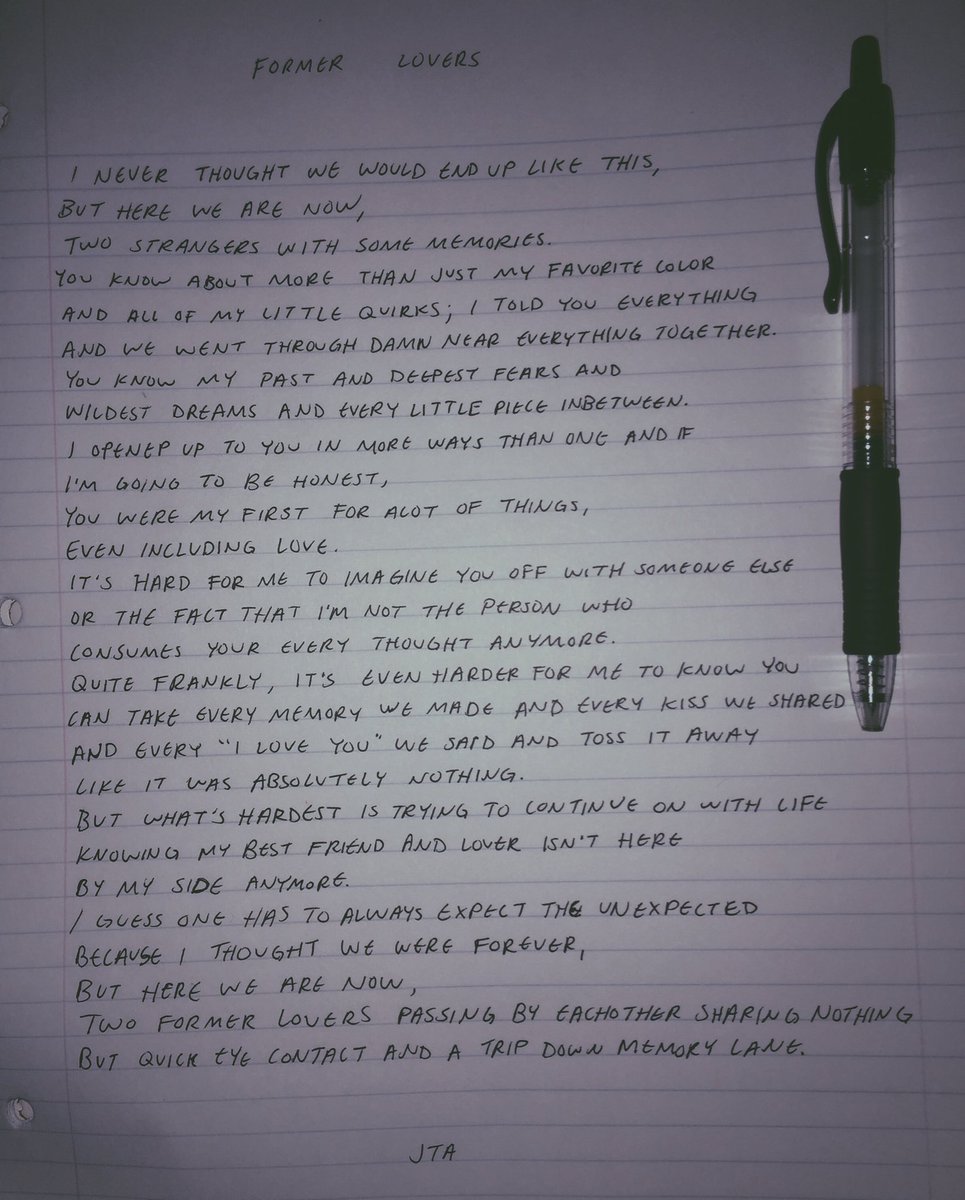 FORMER LOVERS
I NEVER THOUGHT WE WOULD END UP LIKE THIS,
BUT HERE WE ARE NOW,
TWO STRANGERS WITH SOME MEMORIES.
YOU KNOW ABOUT MORE THAN JUST MY FAVORITE COLOR
AND ALL OF MY LITTLE QUIRKS; I TOLD YOU EVERYTHING
AND WE WENT THROUGH DAMN NEAR EVERYTHING TOGETHER.
YOU KNOW MY PAST AND DEEPEST FEARS AND
WILDEST DREAMS AND EVERY LITTLE PIECE INBETWEEN.
I OPENED UP TO YOU IN MORE WAYS THAN ONE AND IF
I'M GOING TO BE HONEST,
YOU WERE MY FIRST FOR ALOT OF THINGS,
EVEN INCLUDING LOVE.
IT'S HARD FOR ME TO IMAGINE YOU OFF WITH SOMEONE ELSE
OR THE FACT THAT I'M NOT THE PERSON WHO
CONSUMES YOUR EVERY THOUGHT ANYMORE.
QUITE FRANKLY, IT'S EVEN HARDER FOR ME TO KNOW YOU
CAN TAKE EVERY MEMORY WE MADE AND EVERY KISS WE SHARED
AND EVERY "I LOVE YOU" WE SAID AND TOSS IT AWAY
LIKE IT WAS ABSOLUTELY NOTHING.
BUT WHAT'S HARDEST IS TRYING TO CONTINUE ON WITH LIFE
KNOWING MY BEST FRIEND AND LOVER ISN'T HERE
BY MY SIDE ANYMORE.
I GUESS ONE HAS TO ALWAYS EXPECT THE UNEXPECTED
BECAUSE I THOUGHT WE WERE FOREVER,
BUT HERE WE ARE NOW,
TWO FORMER LOVERS PASSING BY EACHOTHER SHARING NOTHING
BUT QUICK EYE CONTACT AND A TRIP DOWN MEMORY LANE.
JTA